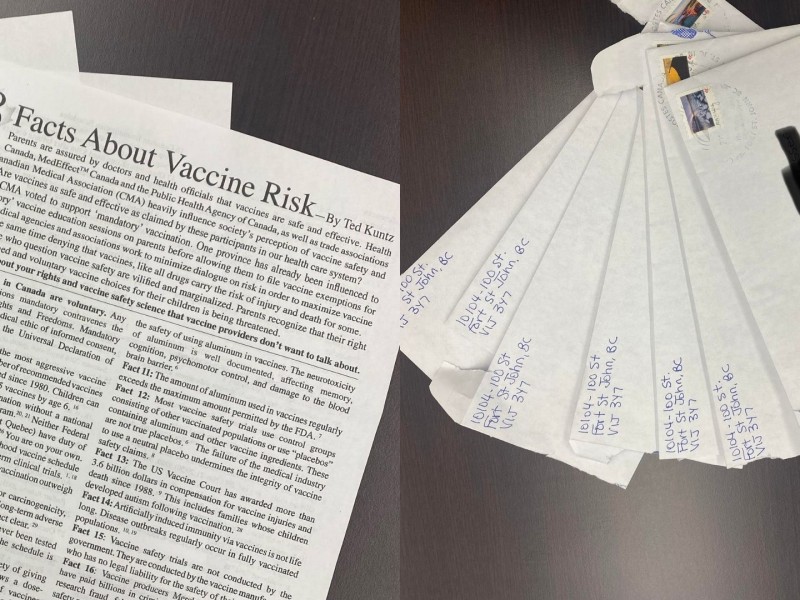 Facts About Vaccine Risk—By Ted Kuntz
Parents are assured by doctors and health officials that vaccines are safe and effective. Health
Canada, MedEffect™ Canada and the Public Health Agency of Canada, as well as trade associations
Canadian Medical Association (CMA) heavily influence society's perception of vaccine safety and
Are vaccines as safe and effective as claimed by these participants in our health care system?
CMA voted to support 'mandatory' vaccination. One province has already been influenced to
ory' vaccine education sessions on parents before allowing them to file vaccine exemptions for
dical agencies and associations work to minimize dialogue on risk in order to maximize vaccine
e same time denying that vaccines, like all drugs carry the risk of injury and death for some.
who question vaccine safety are vilified and marginalized. Parents recognize that their right
ed and voluntary vaccine choices for their children is being threatened.
about your rights and vaccine safety science that vaccine providers don't want to talk about.
in Canada are voluntary. Any
ions mandatory contravenes the
ghts and Freedoms. Mandatory
edical ethic of informed consent,
the Universal Declaration of
the most aggressive vaccine
ber of recommended vaccines
d since 1980. Children can
vaccines by age 6. 16
nation without a national
ram. 20, 21 Neither Federal
Quebec) have duty of
You are on your own.
hood vaccine schedule
rm clinical trials. 1, 18
vaccination outweigh
or carcinogenicity,
ong-term adverse
ct clear. 29
ver been tested
he schedule is
ety of giving
ws a dose-
f vaccines
the safety of using aluminum in vaccines. The neurotoxicity
of aluminum is well documented, affecting memory,
cognition, psychomotor control, and damage to the blood
brain barrier. 6
Fact 11: The amount of aluminum used in vaccines regularly
exceeds the maximum amount permitted by the FDA. 7
Fact 12: Most vaccine safety trials use control groups
consisting of other vaccinated populations or use "placebos"
containing aluminum and other vaccine ingredients. These
are not true placebos. 6 The failure of the medical industry
to use a neutral placebo undermines the integrity of vaccine
safety claims. 8
Fact 13: The US Vaccine Court has awarded more than
3.6 billion dollars in compensation for vaccine injuries and
death since 1988. 9 This includes families whose children
developed autism following vaccination. 28
Fact 14: Artificially induced immunity via vaccines is not life
long. Disease outbreaks regularly occur in fully vaccinated
populations. 10, 19
Fact 15: Vaccine safety trials are not conducted by the
government. They are conducted by the vaccine manufa
who has no legal liability for the safety of the
Fact 16: Vaccine producers Merck
have paid billions in crim
research fraud, f
safety
00 St.
St John, BC
V1J 3Y7
10104-100 St.
Fort St. John, BC
V1J 3Y7
10104-100 St.
Fort St. John, BC
V1J 3Y7
10104-100 St
Fort St John, BC
V1J 3Y7
10104-100 St.
Fort St John, BC
V1J 3Y7
10104-100 St.
Fort St John, BC
V1J 3Y7